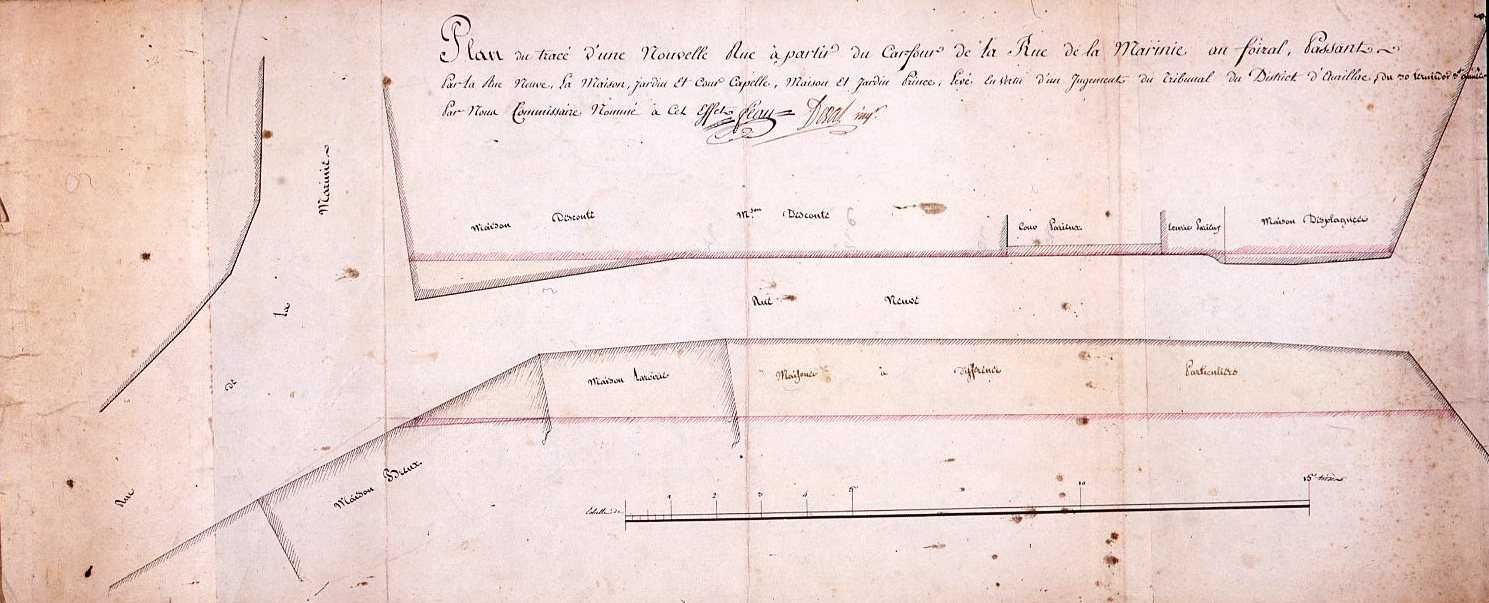 Plan du tracé d'une Nouvelle Rue à partir du Carfour de la Rue de la Marinie au foiral, Passant
Par la Rue Neuve, la Maison, jardin Et Cour Capelle, Maison Et Jardin Prince, levé En vertu d'un Jugement du Tribunal du District d'Aurillac, du 30
Par Nous Commissaire Nommé à Cet Effet
Rue de la Marinie
Maison Desconté
Mson Desconté
Cour Parieux
Parieux
Maison Desplagnes
Rue Neuve
Maison
Maisons à différens Particuliers
Maison
Echelle de
1 2 3 4 5 10 15 toises